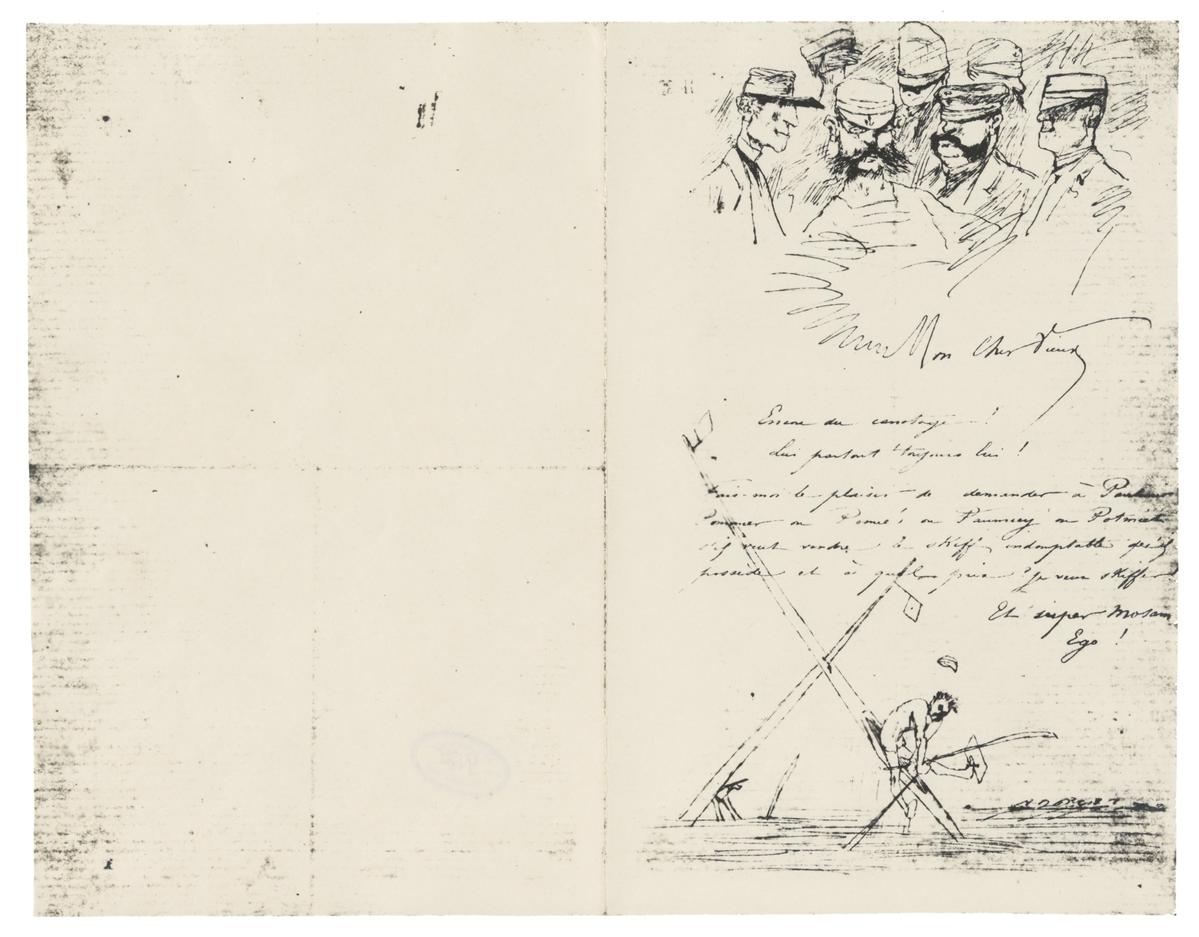 Mon Cher Vieux
Encore du canotage - !
Lui partout toujours lui !
Fais-moi le plaisir de demander à
Pommier ou ou ou
s'il veut vendre le skiff indomptable qu'il
possède et à quel prix ? je veux skiffer
Et super
Ego !